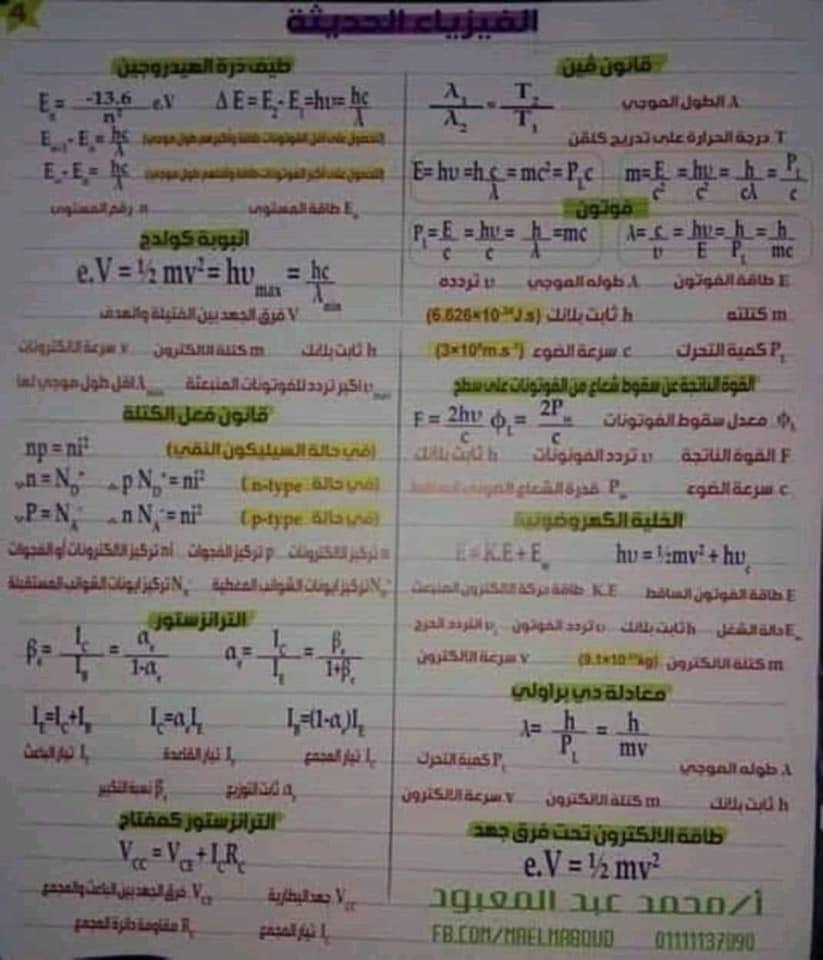 4
الفيزياء الحديثة
قانون فين
λ₁/λ₂ = T₂/T₁
λ الطول الموجي
T درجة الحرارة على تدريج كلفن
E = hυ = h c/λ = mc² = P_L c
m = E/c² = hυ/c² = h/cλ = P_L/c
فوتون
P_L = E/c = hυ/c = h/λ = mc
λ = c/υ = hc/E = h/P_L = h/mc
E طاقة الفوتون λ طوله الموجي υ تردده
m كتلته h ثابت بلانك (6.626×10⁻³⁴J.s)
P_L كمية التحرك c سرعة الضوء (3×10⁸m.s⁻¹)
القوة الناتجة عن سقوط شعاع من الفوتونات على سطح
F = 2hυ/c ϕ_L = 2P_w/c
ϕ_L معدل سقوط الفوتونات
F القوة الناتجة υ تردد الفوتونات h ثابت بلانك
c سرعة الضوء P_w قدرة الشعاع الضوئي الساقط
الخلية الكهروضوئية
E = K.E + E_w
hυ = ½mv² + hυ_c
E طاقة الفوتون الساقط K.E طاقة حركة الالكترون المنبعث
E_w دالة الشغل h ثابت بلانك υ تردد الفوتون υ_c التردد الحرج
m كتلة الالكترون (9.1×10⁻³¹kg) v سرعة الالكترون
معادلة دي براولي
λ = h/P_L = h/mv
λ طوله الموجي P_L كمية التحرك
h ثابت بلانك m كتلة الالكترون v سرعة الالكترون
طاقة الالكترون تحت فرق جهد
e.V = ½ mv²
أ/محمد عبد المعبود
FB.COM/MAELMABOUD 01111137090
طيف ذرة الهيدروجين
E_n = -13.6/n² e.V ΔE = E₂ - E₁ = hυ = hc/λ
E_{n+1} - E_n = hc/λ (للحصول على أقل الفوتونات طاقة وأكبرهم طول موجي)
E_∞ - E_n = hc/λ (للحصول على أكبر الفوتونات طاقة وأقلهم طول موجي)
E_n طاقة المستوى n رقم المستوى
انبوبة كولدج
e.V = ½ mv² = hυ_max = hc/λ_min
V فرق الجهد بين الفتيلة والهدف
h ثابت بلانك m كتلة الالكترون v سرعة الالكترونات
υ_max أكبر تردد للفوتونات المنبعثة λ_min أقل طول موجي لها
قانون فعل الكتلة
np = ni² (في حالة السيليكون النقي)
n = N_D⁺ p N_D⁺ = ni² (في حالة n-type)
P = N_A⁻ n N_A⁻ = ni² (في حالة p-type)
n تركيز الالكترونات p تركيز الفجوات ni تركيز الالكترونات أو الفجوات
N_D⁺ تركيز ايونات الشوائب المعطية N_A⁻ تركيز ايونات الشوائب المستقبلة
الترانزستور
β_e = I_C/I_B = α_e/1-α_e α_e = I_C/I_E = β_e/1+β_e
I_E = I_C + I_B I_C = α_e I_E I_B = (1-α_e)I_E
I_C تيار المجمع I_B تيار القاعدة I_E تيار الباعث
α_e ثابت التوزيع β_e نسبة التكبير
الترانزستور كمفتاح
V_CC = V_CE + I_C R_C
V_CC جهد البطارية V_CE فرق الجهد بين الباعث والمجمع
I_C تيار المجمع R_C مقاومة دائرة المجمع